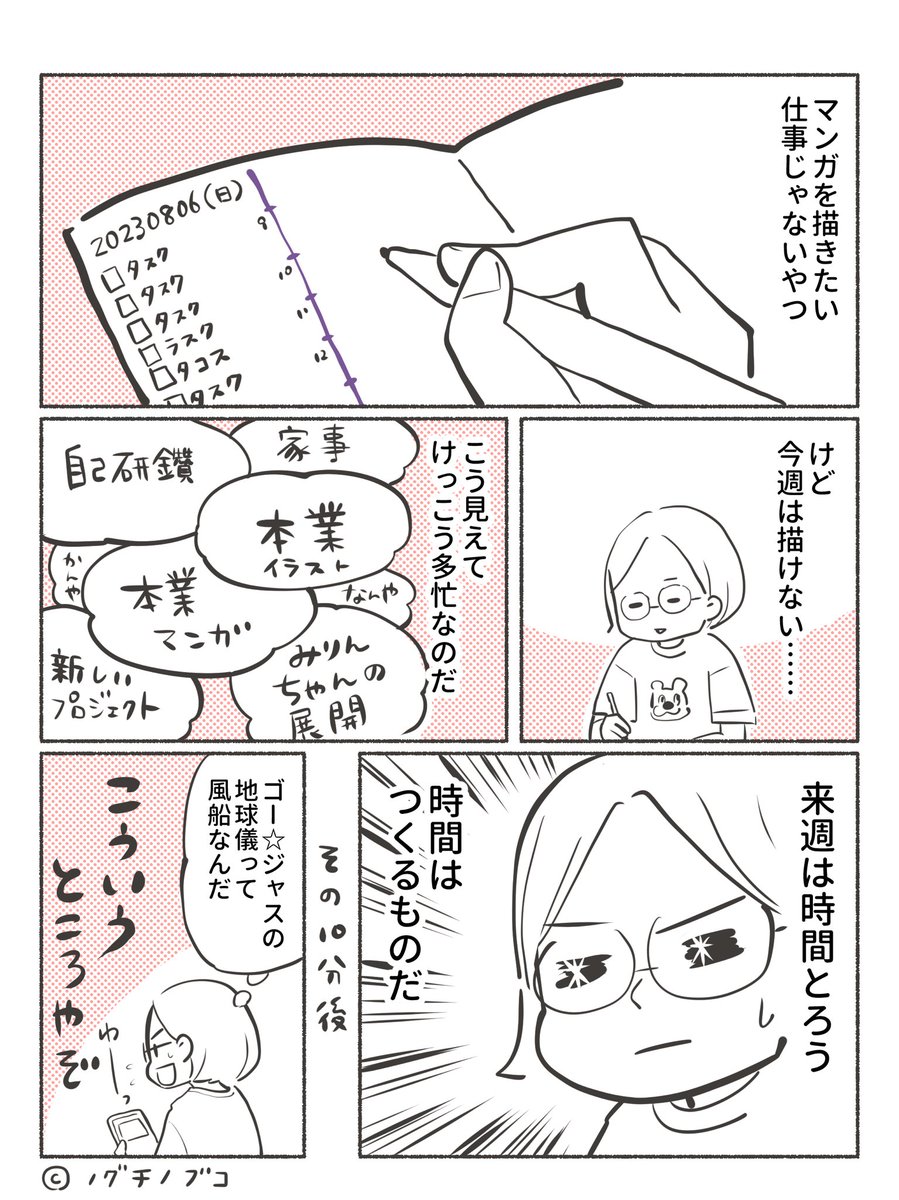 マンガを描きたい
仕事じゃないやつ
20230806(日)
9
10
11
12
タスク
タスク
タスク
ラスク
タコス
タスク
けど
今週は描けない……
こう見えて
けっこう多忙なのだ
家事
自己研鑽
本業
イラスト
かんや
なんや
本業
マンガ
みりん
ちゃんの
展開
新しい
プロジェクト
来週は時間とろう
時間は
つくるものだ
その10分後
ゴー☆ジャスの
地球儀って
風船なんだ
わーっ
こういう
ところやぞ
© ノグチノブコ